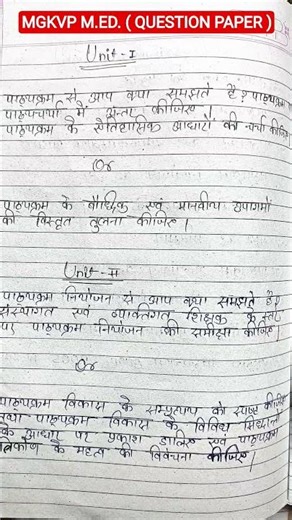 MGKVP M.ED. ( QUESTION PAPER )
Unit - I
पाठ्यक्रम से आप क्या समझते हैं? पाठ्यक्रम
पाठ्यचर्या में अन्तर कीजिए।
पाठ्यक्रम के ऐतिहासिक आधारों की चर्चा कीजिए
Or
पाठ्यक्रम के बौद्धिक एवं मानवीय उपागमों
की विस्तृत तुलना कीजिए।
Unit - II
पाठ्यक्रम नियोजन से आप क्या समझते हैं?
संस्थागत एवं व्यक्तिगत शिक्षक के स्तर
पर पाठ्यक्रम नियोजन की समीक्षा कीजिए।
Or
पाठ्यक्रम विकास के सम्प्रत्यय को स्पष्ट कीजिए
तथा पाठ्यक्रम विकास के विविध सिद्धान्तों
के आधार पर प्रकाश डालिए एवं पाठ्यक्रम
के महत्व की विवेचना कीजिए।